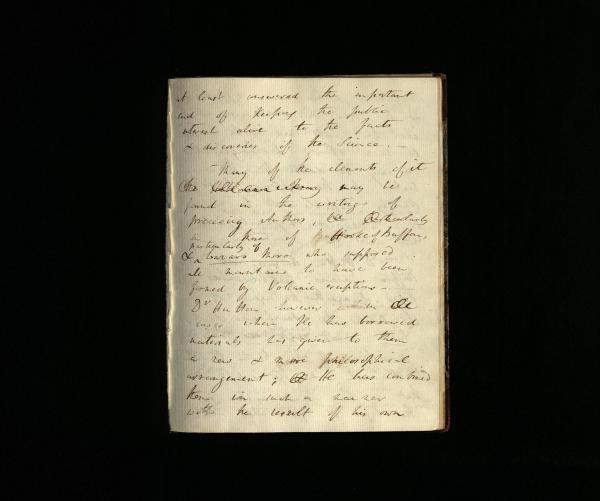 at least answered the important
end of keeping the public
interest alive to the facts
& discoveries of the Science. —
Many of the elements of it
the may be
found in the writings of
preceding Authors,
particularly those of Hooke of Buffon
& Lazaro Moro who supposed
all mountains to have been
formed by Volcanic eruptions —
Dr Hutton however
cases where He has borrowed
materials has given to them
a new & more philosophical
arrangement; He has combined
them in such a manner
with the result of his own